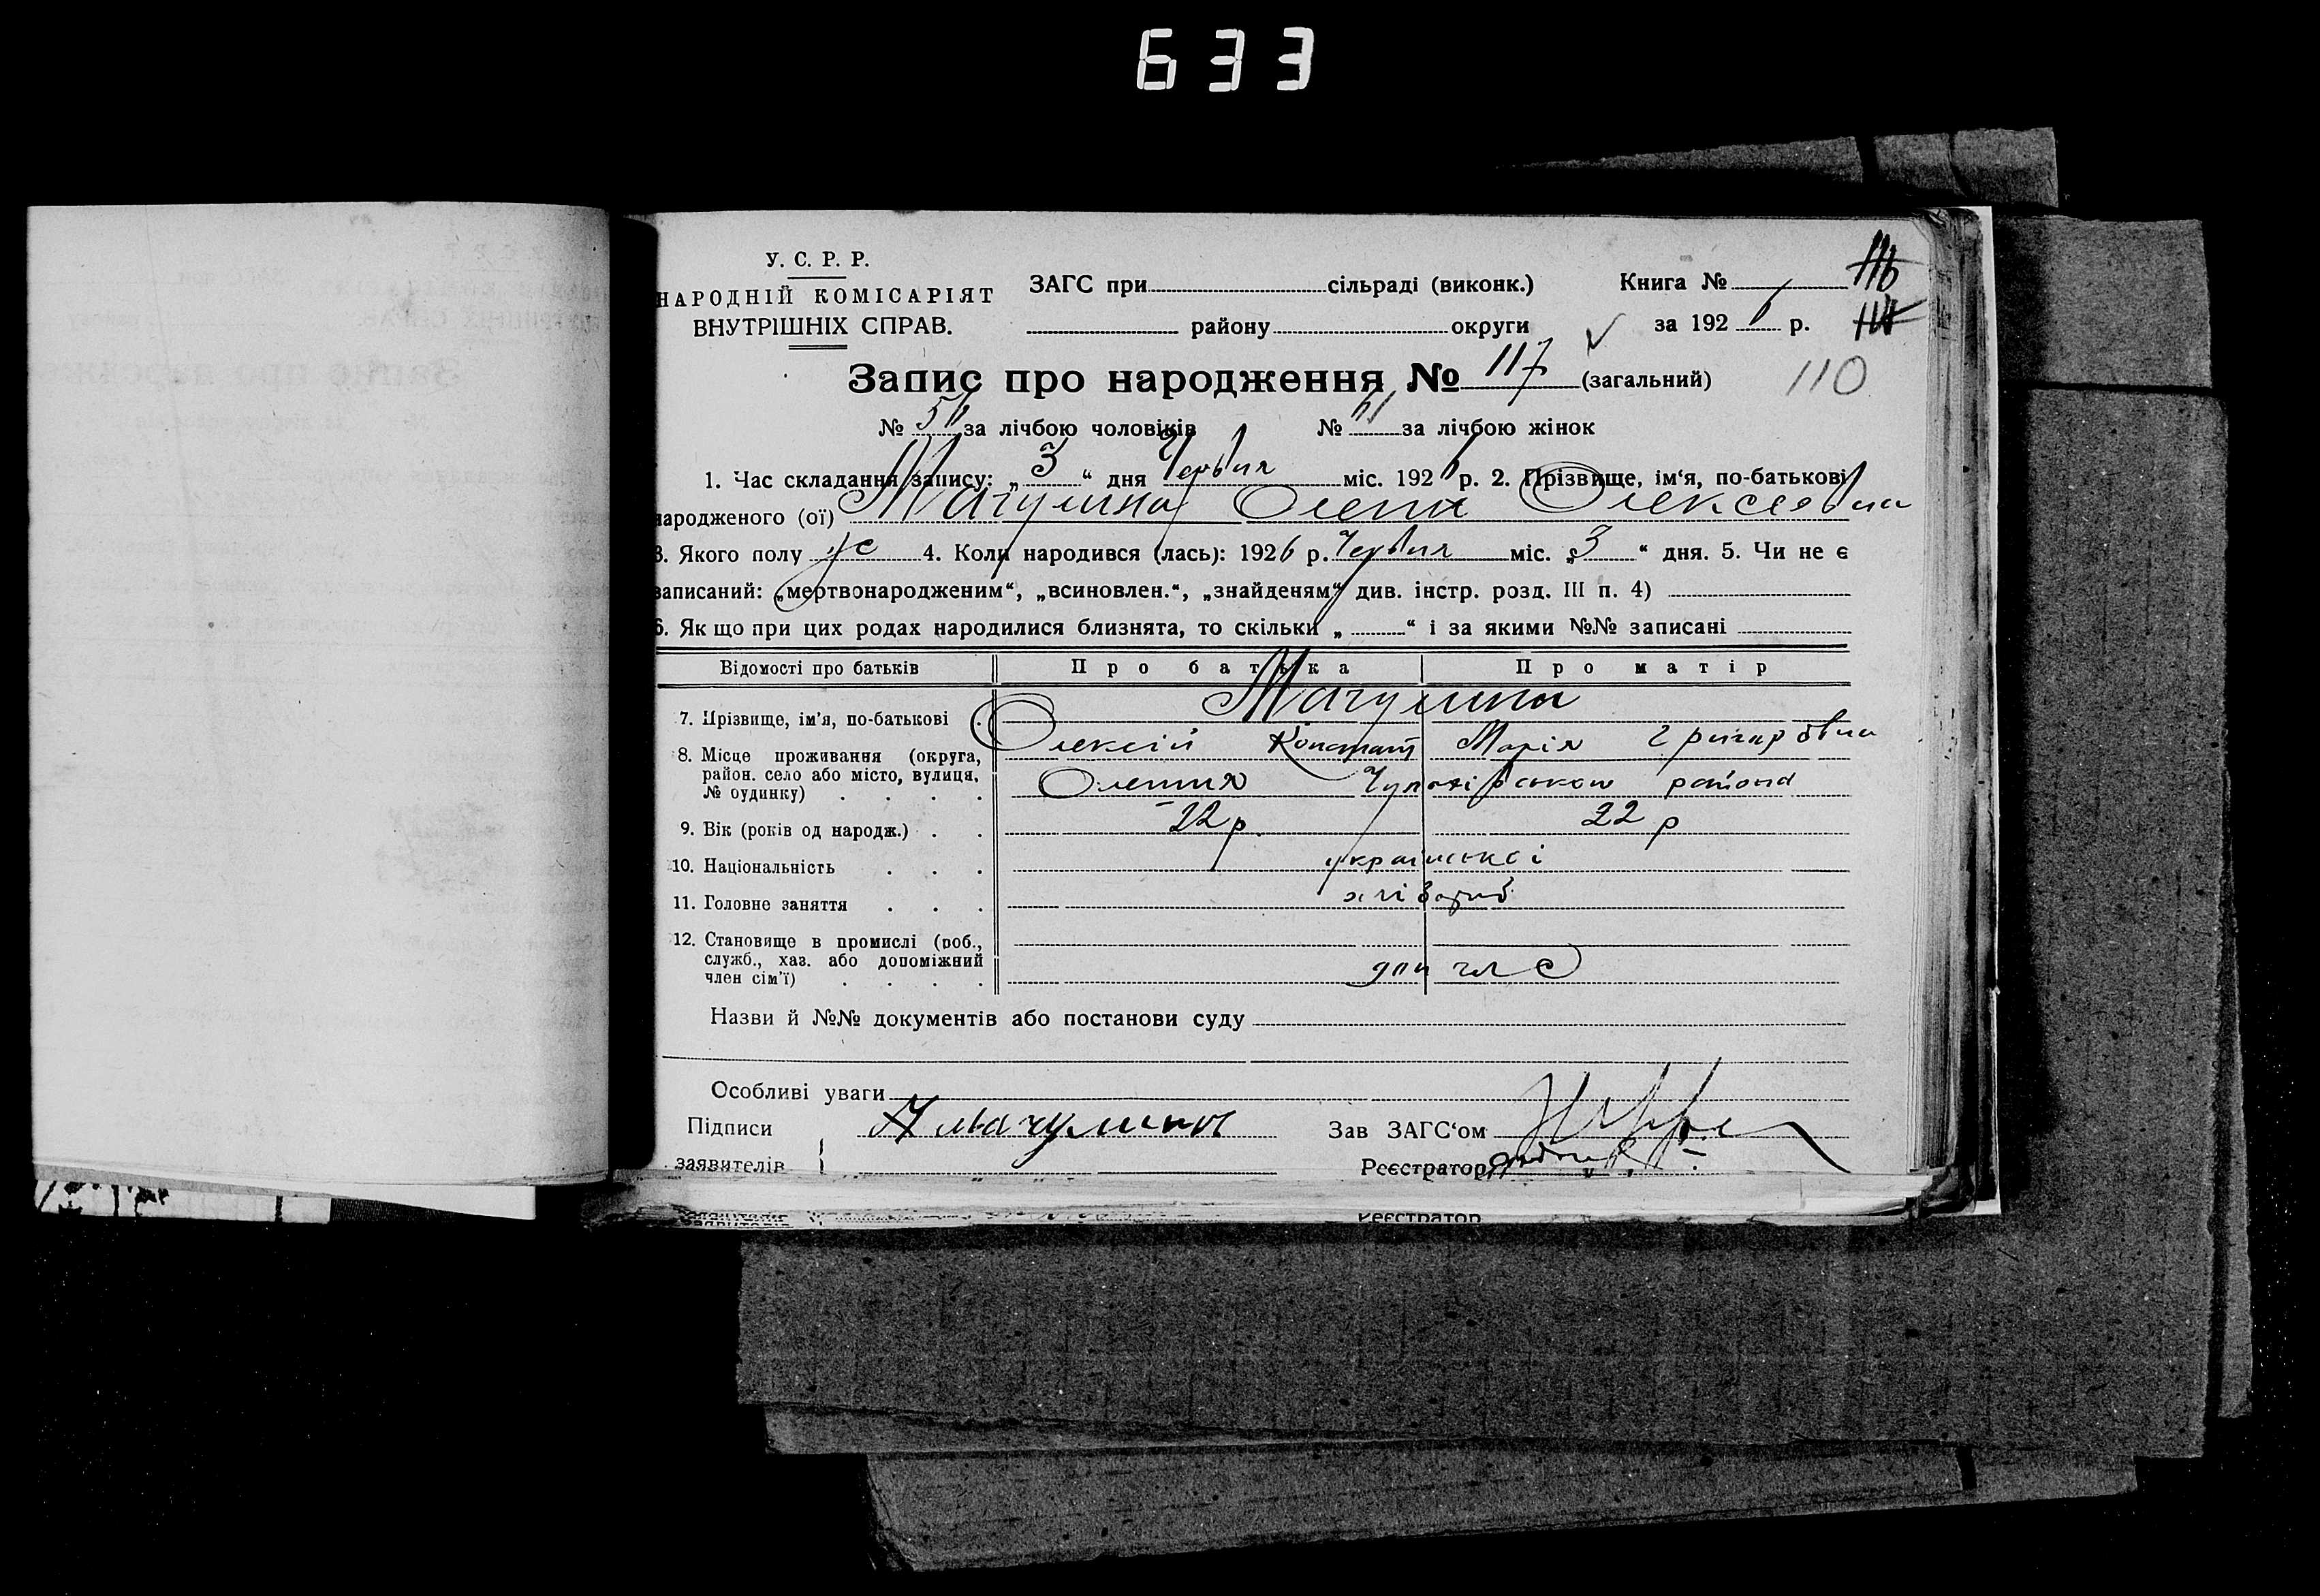 633
У. С. Р. Р.
НАРОДНІЙ КОМІСАРІЯТ
ВНУТРІШНІХ СПРАВ.
ЗАГС при сільраді (виконк.)
району округи
Книга № 116
за 1926 р. 114
Запис про народження № 117 (загальний) 110
№ 56 за лічбою чоловіків № 61 за лічбою жінок
1. Час складання запису: „3“ дня Червня міс. 1926 р. 2. Прізвище, ім‘я, по-батькові
народженого (ої) Мачулина Олена Олексієвна
3. Якого полу жс 4. Коли народився (лась): 1926 р. Червня міс. „3“ дня. 5. Чи не є
записаний: „мертвонародженим“, „всиновлен.“, „знайденям“ див. інстр. розд. III п. 4)
6. Як що при цих родах народилися близнята, то скільки „ “ і за якими №№ записані
Відомості про батьків Про батька Про матір
7. Прізвище, ім'я, по-батькові Мачулина
Олексій Констант Марія Григорвна
8. Місце проживання (округа,
район. село або місто, вулиця,
№ будинку) района
9. Вік (років од народж.) 22 р. 22 р
10. Національність української
11. Головне заняття хлібороб
12. Становище в промислі (роб.,
служб., хаз. або допоміжний
член сім'ї) доп чл с
Назви й №№ документів або постанови суду
Особливі уваги
Підписи Зав ЗАГС‘ом
заявителів Реєстратор
Реєстратор